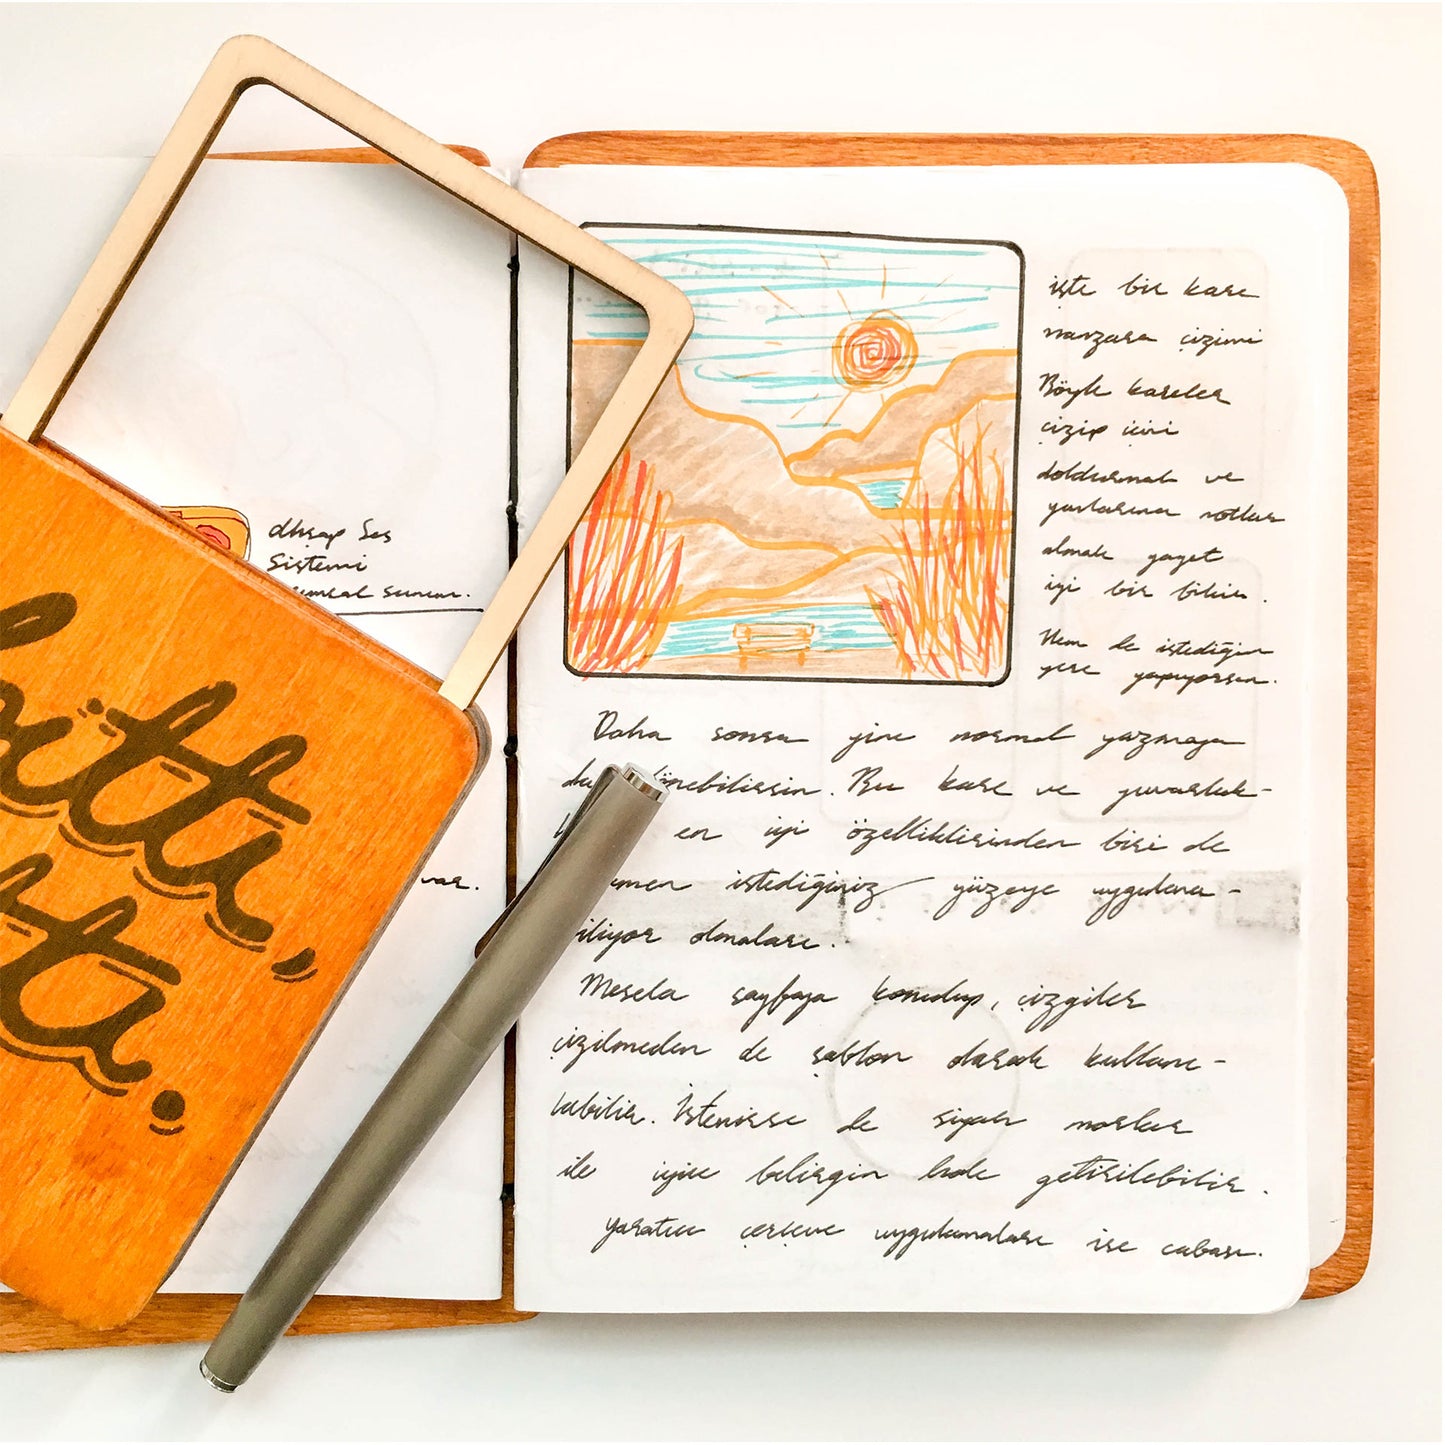 Ahşap Ses
Sistemi
sunum.
var.
işte bir kare
manzara çizimi
Böyle kareler
çizip içini
doldurmak ve
yanlarına notlar
almak gayet
iyi bir fikir.
Hem de istediğin
yere yapıyorsun.
Daha sonra yine normal yazmaya
dönebilirsin. Bu kare ve yuvarlak-
en iyi özelliklerinden biri de
istediğiniz yüzeye uygulana-
biliyor olmaları.
Mesela sayfaya konulup, çizgiler
çizilmeden de şablon olarak kullanı-
labilir. İstenirse de siyah
ile iyice belirgin hale getirilebilir.
Yaratıcı çerçeve uygulamaları ise cabası.